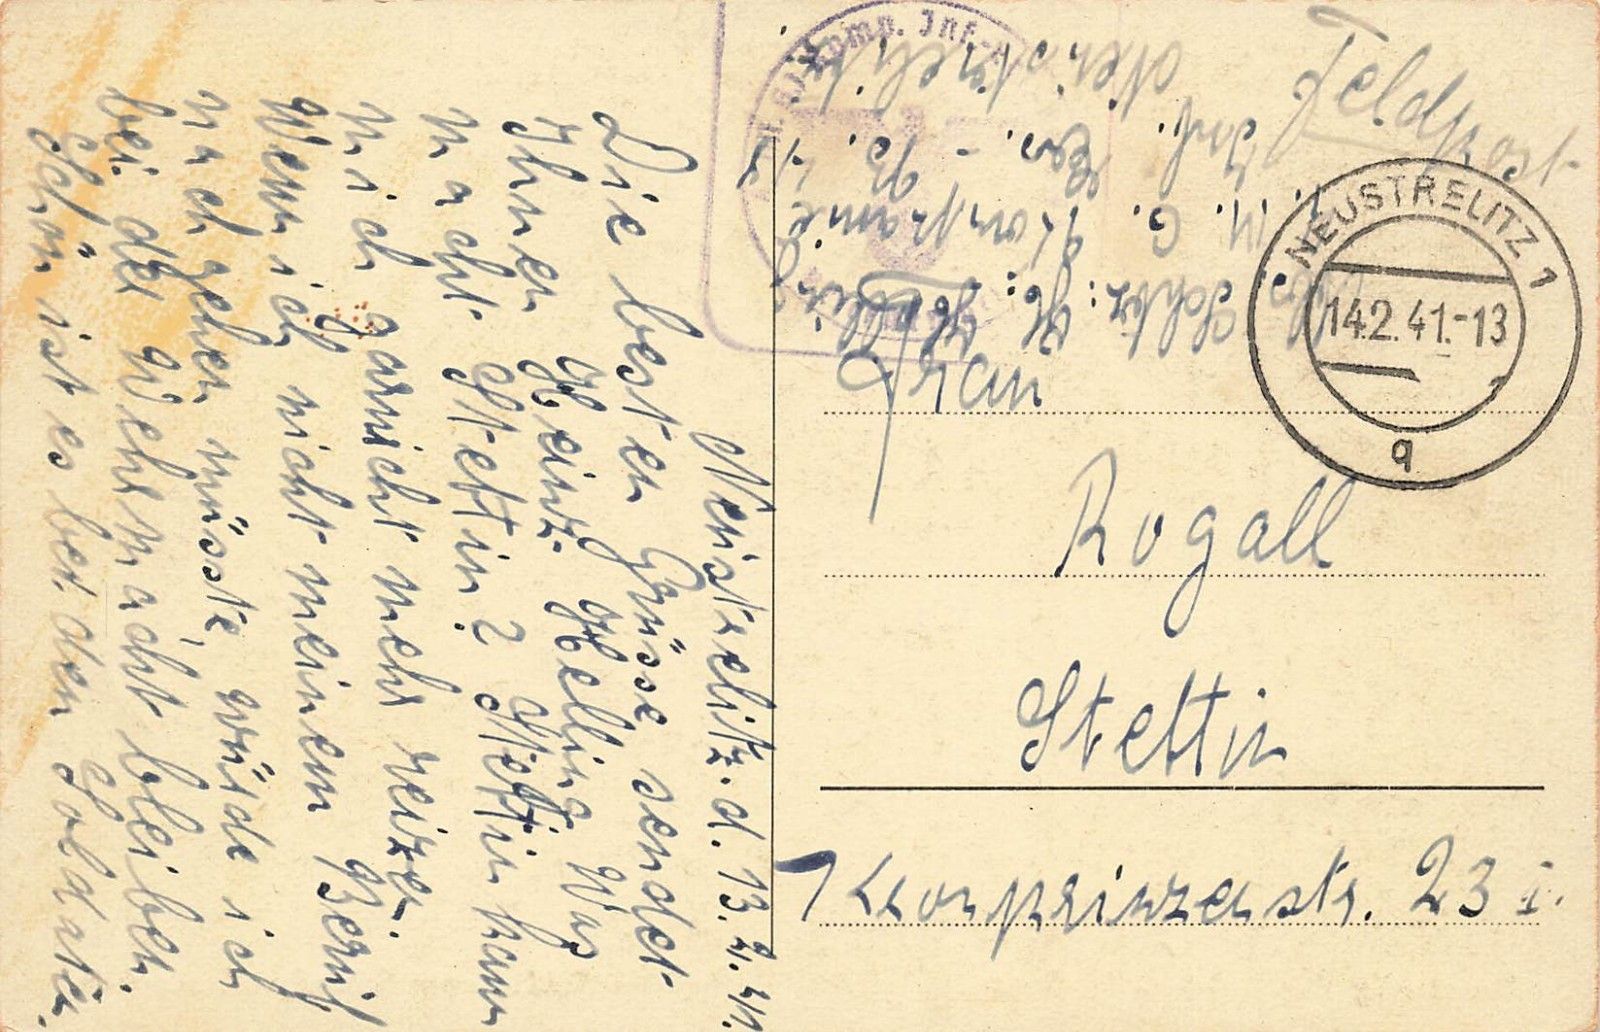 Neustrelitz. d. 13.2.41.
Die besten Grüsse sendet
Ihnen Heinz Helling Was
macht Stettin? Stettin kann
mich garnicht mehr reizen.
Wenn ich nicht meinem Beruf
nach gehen müsste, würde ich
bei der Wehrmacht bleiben.
Schön ist es bei den Soldaten.
Feldpost
Schtz: H. Helling
M. G. Kompanie
Inf. Ers.-B.
Neustrelitz
Komp. Inf.-
NEUSTRELITZ 1
14.2.41.-13
a
Frau
Rogall
Stettin
Kronprinzenstr. 23 I.